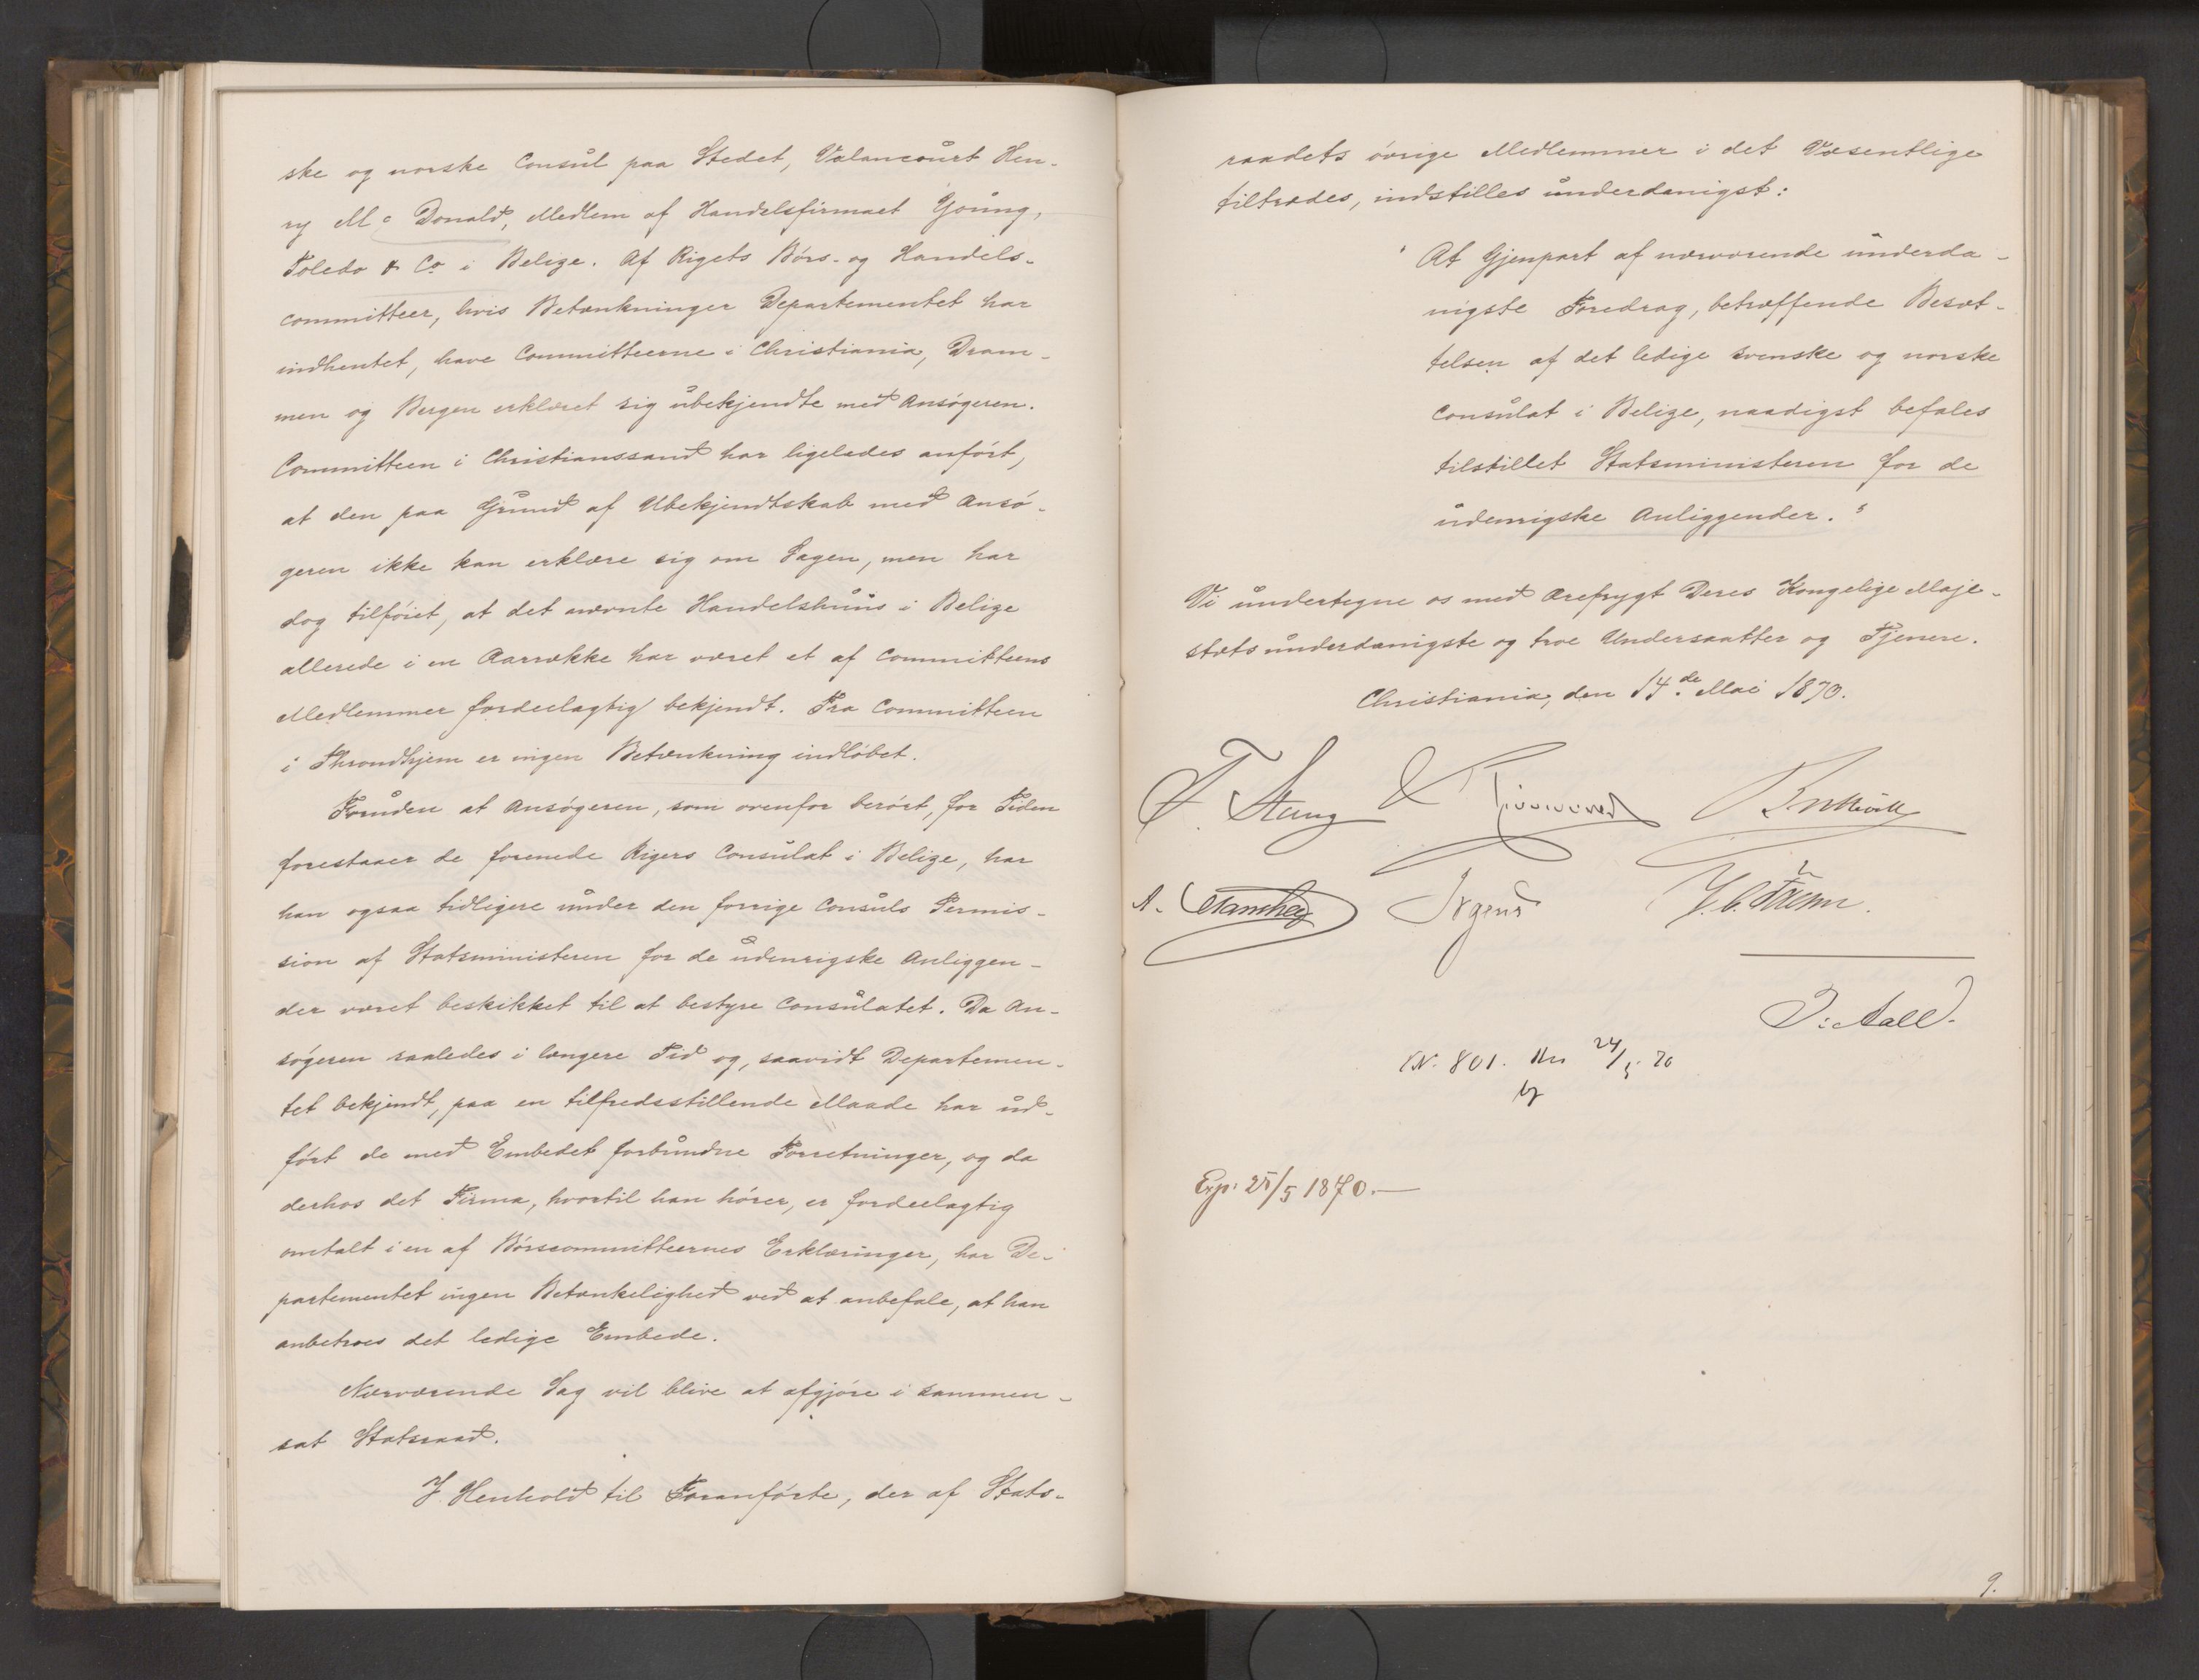 ske og norske Consul paa Stedet, Valancourt Hen-
ry Mc Donald, Medlem af Handelsfirmaet Young,
Toledo & Co i Belize. Af Rigets Börs- og Handels-
committeer, hvis Betænkninger Departementet har
indhentet, have Committeerne i Christiania, Dram-
men og Bergen erklæret sig ubekjendte med Ansögeren.
Committeen i Christianssand har ligeledes anfört,
at den paa Grund af Ubekjendtskab med Ansö-
geren ikke kan erklære sig om Sagen, men har
dog tilföiet, at det nævnte Handelshuus i Belize
allerede i en Aarrække har været et af Committeens
Medlemmer fordeelagtig bekjendt. Fra Committeen
i Throndhjem er ingen Betænkning indlöbet.
Foruden at Ansögeren, som ovenfor berört, for Tiden
forestaaer de forenede Rigers Consulat i Belize, har
han ogsaa tidligere under den forrige Consuls Permis-
sion af Statsministeren for de udenrigske Anliggen-
der været beskikket til at bestyre Consulatet. Da An-
sögeren saaledes i længere Tid og, saavidt Departemen-
tet bekjendt, paa en tilfredsstillende Maade har ud-
fört de med Embedet forbundne Forretninger, og da
derhos det Firma, hvortil han hörer, er fordeelagtig
omtalt i en af Börscommitteernes Erklæringer, har De-
partementet ingen Betænkelighed ved at anbefale, at han
anbetroes det ledige Embede.
Nærværende Sag vil blive at afgjöre i sammen-
sat Statsraad.
I Henhold til Foranförte, der af Stats-
raadets övrige Medlemmer i det Væsentlige
tiltrædes, indstilles underdanigst:
" At Gjenpart af nærværende underda-
nigste Foredrag, betræffende Besæt-
telsen af det ledige svenske og norske
Consulat i Belize, naadigst befales
tilstillet Statsministeren for de
udenrigske Anliggender. "
Vi undertegne os med Ærefrygt Deres Kongelige Maje-
stæts underdanigste og troe Undersaatter og Tjenere.
Christiania, den 14de Mai 1870.
F. Stang
Irgens
J. Aall.
N. 801. 24/5 70
Exp: 25/5 1870.—
9.